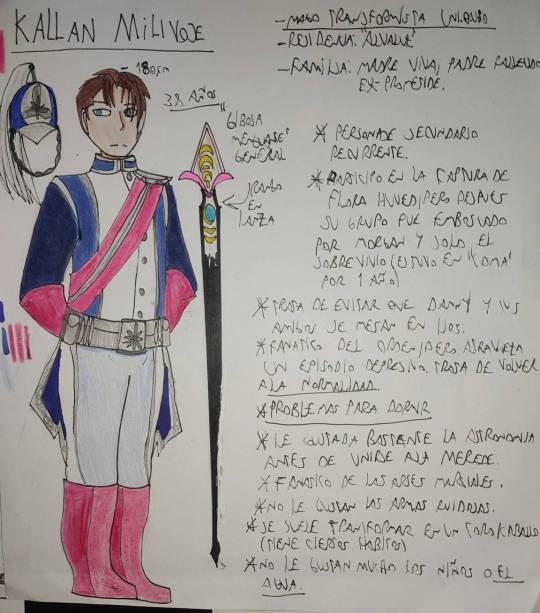 KALLAN MILIVOJE
- MAGO TRANSFORMISTA
- RESIDENCIA: "ALVALLE"
- FAMILIA: MADRE VIVA, PADRE FALLECIDO
EX-PROMETIDE.
- 180cm
38 AÑOS
"GIBOSA
MENGUANTE"
GENERAL
RANGO
EN
LANZA
* PERSONAJE SECUNDARIO
RECURRENTE.
* PARTICIPO EN LA CAPTURA DE
FLORA PERO DESPUES
SU GRUPO FUE EMBOSCADO
POR MORGAN Y SOLO EL
SOBREVIVIO (ESTUVO EN "COMA"
POR 1 AÑO)
* TRATA DE EVITAR QUE DANNY Y SUS
AMIGOS SE METAN EN LIOS.
* FANATICO DEL ORDEN, PERO ATRAVIESA
UN EPISODIO DEPRESIVO. TRATA DE VOLVER
A LA NORMALIDAD.
* PROBLEMAS PARA DORMIR
* LE GUSTABA BASTANTE LA ASTRONOMIA
ANTES DE UNIRSE A LA
* FANATICO DE LAS ARTES MARCIALES.
* NO LE GUSTAN LAS ARMAS RUIDOSAS.
* SE SUELE TRANSFORMAR EN UN TORO/CABALLO
(TIENE CIERTOS HABITOS)
* NO LE GUSTAN MUCHO LOS NIÑOS O EL
AGUA.